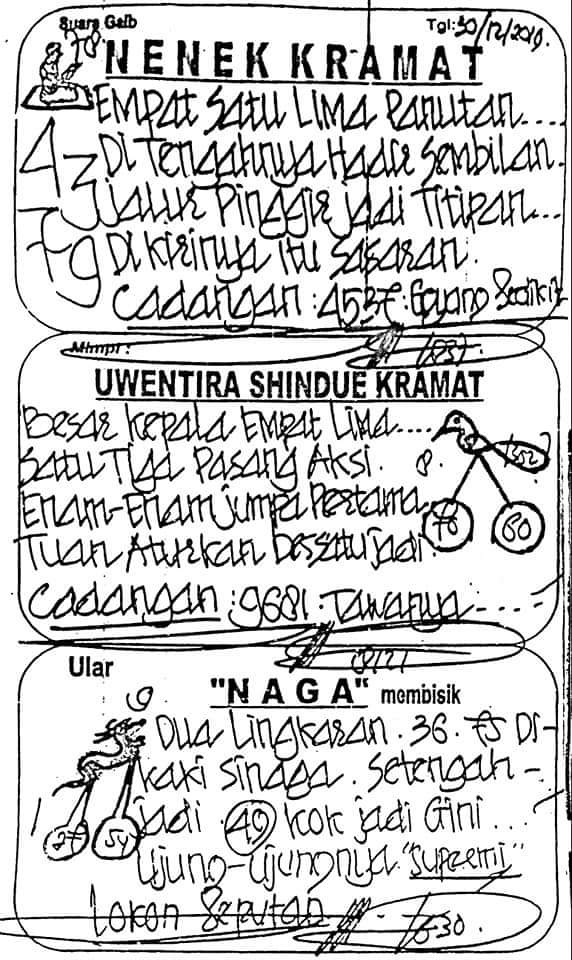 Suara Gaib
Tgl: 30/12/2019.
NENEK KRAMAT
EMPAT SATU LIMA PANUTAN....
Di Tengahnya Hadir Sembilan.
Jalur Pinggir jadi Titipan...
Di Kirinya itu Sasaran.
43
79
Cadangan : 4537 : Goyang Sedikit
Mimpi :
UWENTIRA SHINDUE KRAMAT
Besar Kepala Empat Lima....
Satu Tiga Pasang Aksi.
8.
Enam-Enam jumpa Pertama.
Tuan Aturkan Bersatu jadi.
60
Cadangan : 9681 : Tawanya----
Ular
"NAGA" membisik
9
Dua Lingkaran. 36. 75 Di-
kaki Sinaga. Setengah-
jadi 49 kok jadi Gini...
Ujung-Ujungnya "Supremi"
27
54
Lokon Seputan